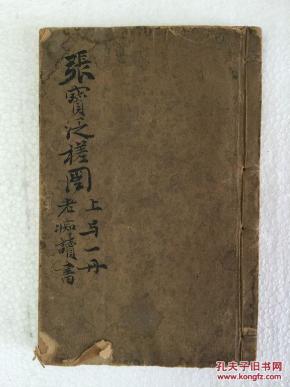 張寶泛槎圖
上与一册
老痴讀書
孔夫子旧书网
kongfz.com